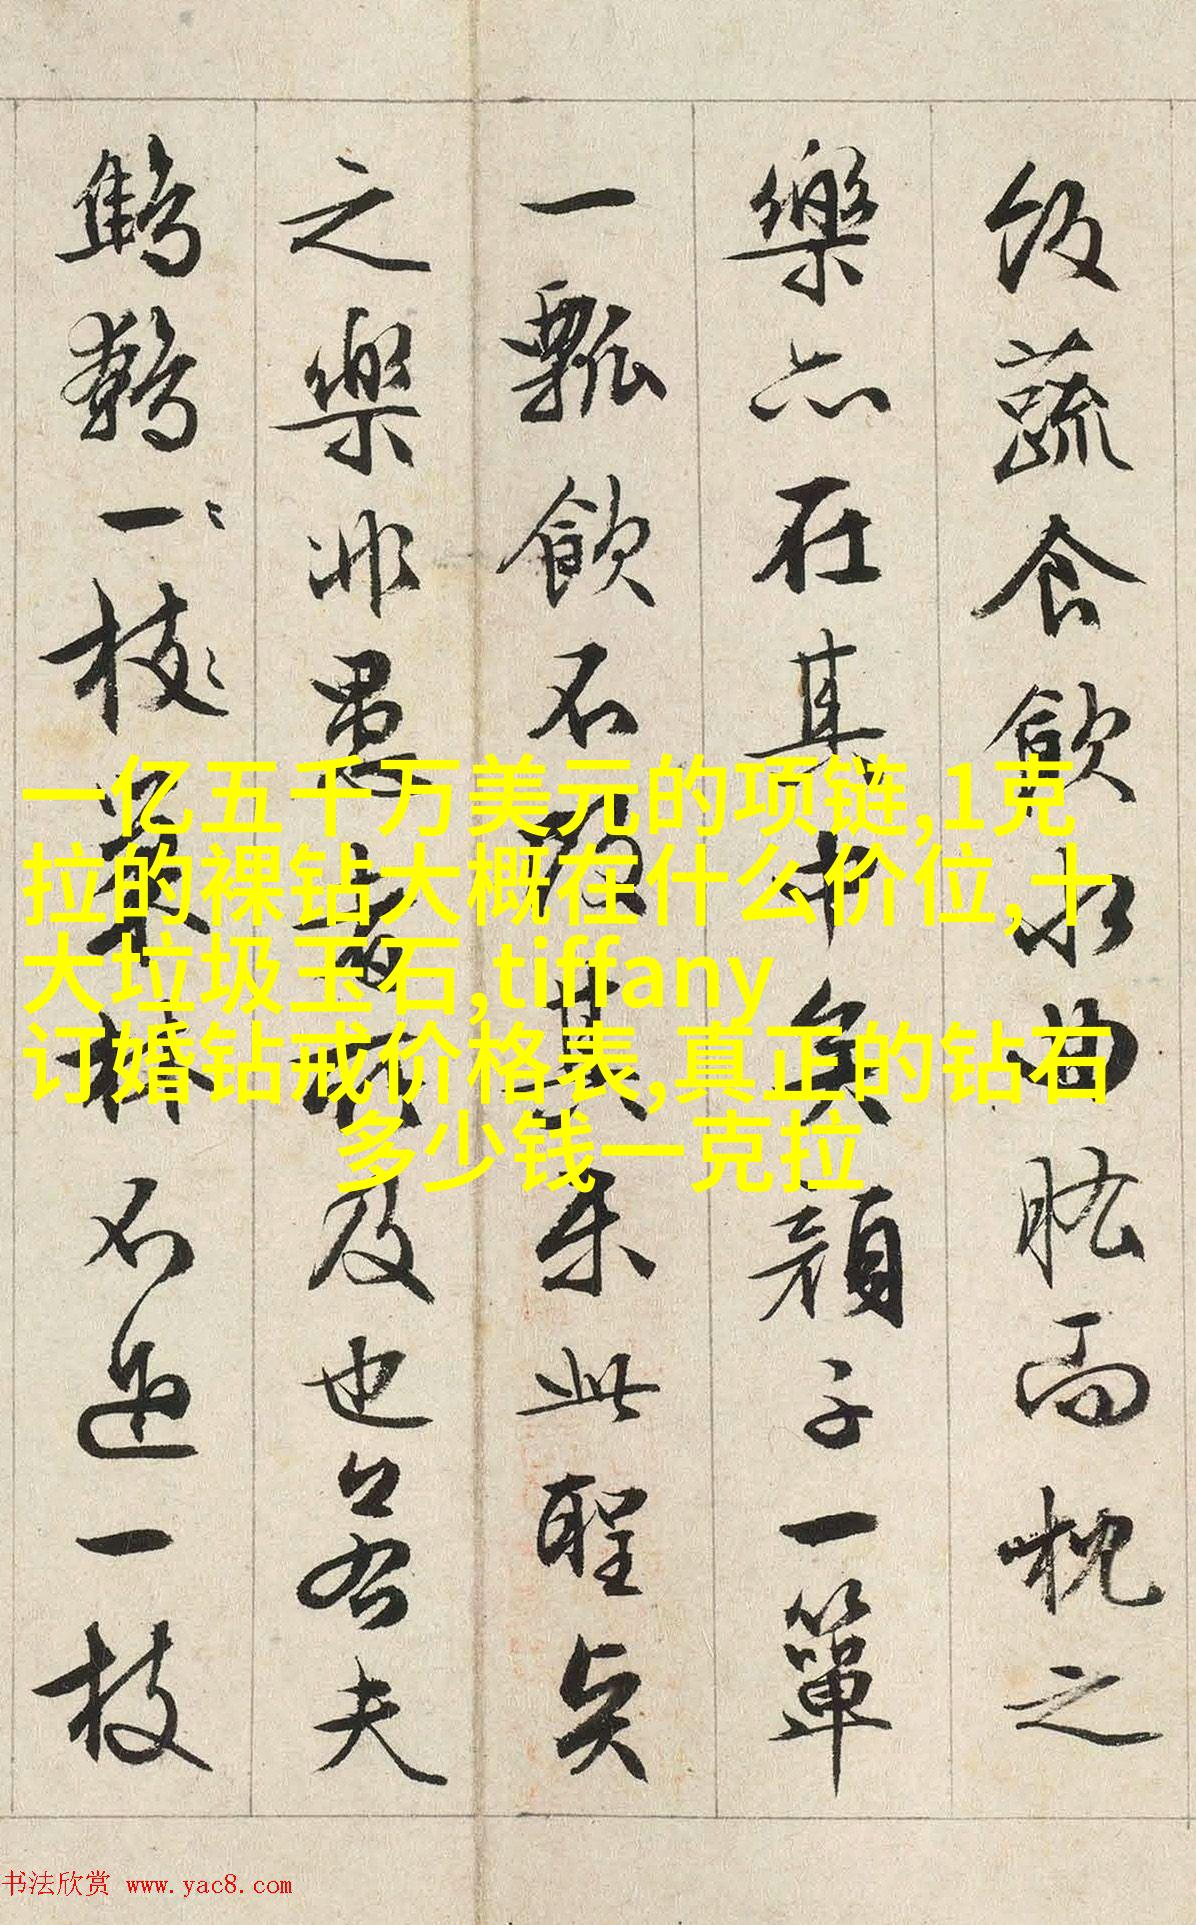 飯蔬食飲水曲肱而枕之
樂亦在其中矣顏子一簞
一瓢飲不改其樂此聖賢
之樂非愚者所及也若夫
鷦鷯一枝巢林不過一枝
一亿五千万美元的项链,1克
拉的裸钻大概在什么价位,十
大垃圾玉石,tiffany
订婚钻戒价格表,真正的钻石
多少钱一克拉
书法欣赏 www.yac8.com